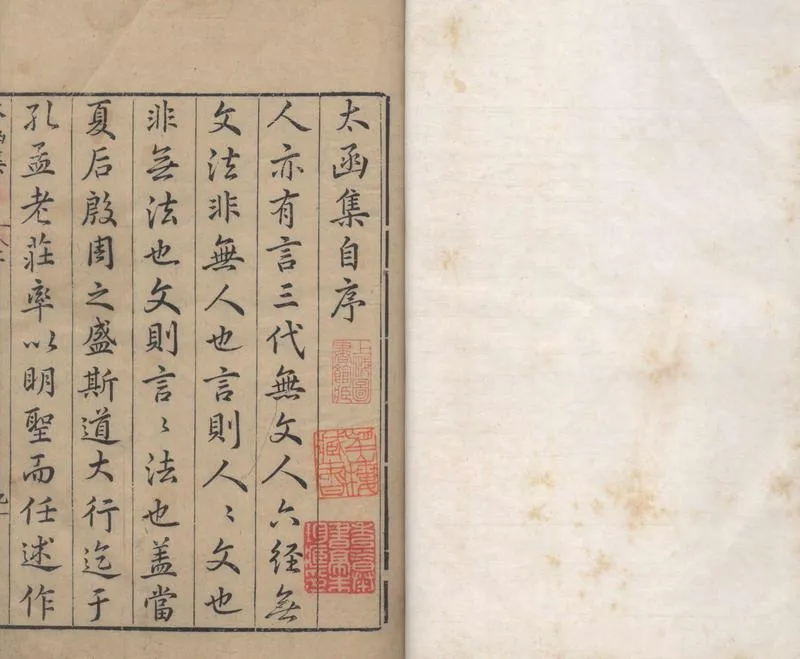 太函集自序
人亦有言三代無文人六经無
文法非無人也言則人〻文也
非無法也文則言〻法也盖當
夏后殷周之盛斯道大行迄于
孔孟老莊率以明聖而任述作
上海圖書館藏